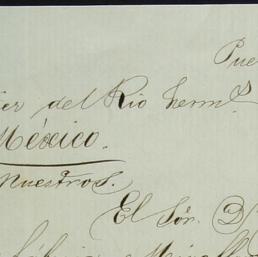 Pue
ier del Rio herm.s
México.
nuestros.
El Sór. D